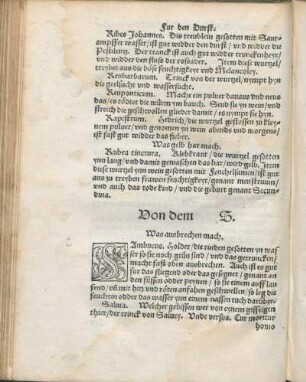 Fur den Durst.
Ribes Johannes. Dis treublein gesotten mit Saur-
ampffer wasser/ist gut widder den durst/ vnd widder die
Pestilentz. Der tranck ist auch gut widder trunckenheyt/
vnd widder den flusz der rosader. Item diese wurtzel/
treyber aus die bösz feuchtigkeyt vnd Melancoley.
Reubarbarum. Trinck von der wurtzel/nympt hyn
die geelsucht vnd wassersucht.
Reuponticum. Mache ein puluer daraus vnd neuß
das/es tödtet die würm ym bauch. Seud sie yn wein/vnd
streich die geschwollen glieder damit: es nympt sie hyn.
Rapistrum. Hedrich/die wurtzel gestossen zu kley-
nem puluer/vnd genomen yn wein abends vnd morgens/
ist fast gut widder das fieber.
Was gelb har mach.
Rubea tinctura. Klebkraut/die wurtzel gesotten
ynn laug/vnd damit gewaschen das har/werd gelb. Item
diese wurtzel ynn wein gesotten mit Fenchelsamen/ist gut
aus zu treyben frawen feuchtigkeyt/genant menstruum/
vnd auch das tode kind/ vnd die geburt genant Secun-
dina.
Von dem S.
Was ausbrechen mach.
SAmbucus. Holder/die rinden gesotten yn was-
ser so sie noch grün sind/ vnd das getruncken/
macht fast oben ausbrechen. Auch ist es gut
fur das fliegend oder das gesegnet/genant an
den füssen odder
send/vnd mit hytz vnd röten anfahen geschwellen/so leg die
feuchen odder das wasser ynn einem tuch darüber.
Saluia. Welcher gebissen wer von einem gifftigen
thier/der trinck von Saluey. Vnde versus. Cur moritur
homo